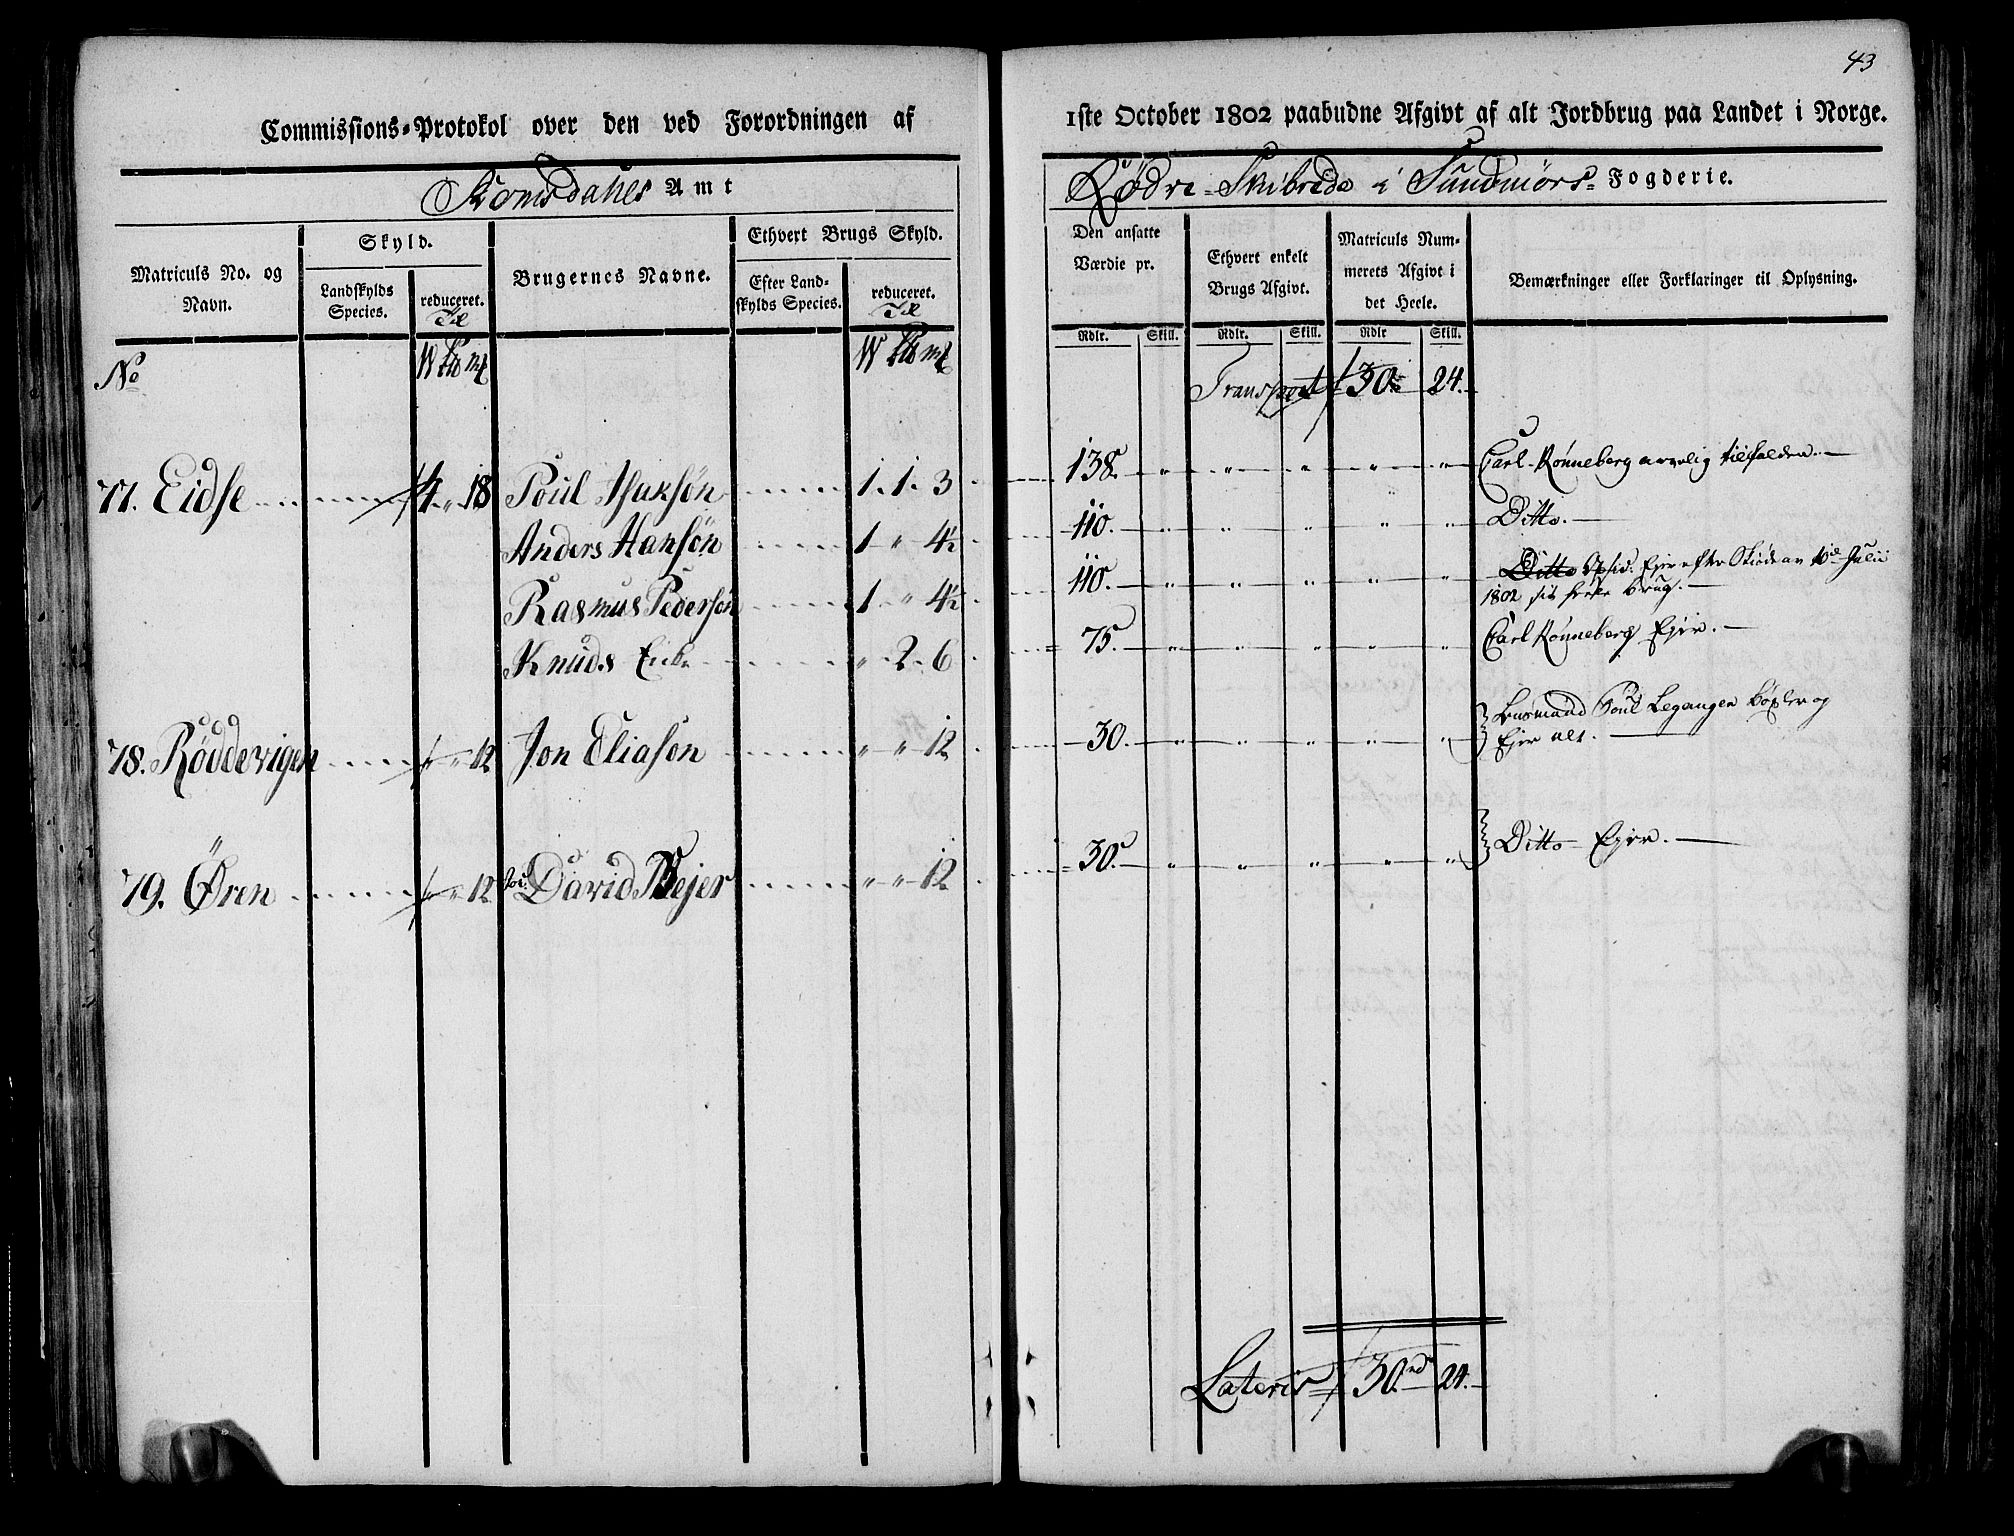 43
Commissions-Protokol over den ved Forordningen af 1ste October 1802 paabudne Afgivt af alt Jordbrug paa Landet i Norge.
Romsdahls Amt
Rødre Skibrede i Sundmørs Fogderie.
Matriculs No. og Navn.
Skyld.
Landskylds Species.
reduceret.
Brugernes Navne.
Ethvert Brugs Skyld.
Efter Landskylds Species.
reduceret.
Den ansatte Værdie pr.
Ethvert enkelt Brugs Afgivt.
Matriculs Nummerets Afgivt i det Heele.
Bemærkninger eller Forklaringer til Oplysning.
Rdlr. Skill. Rdlr. Skill. Rdlr Skill.
No
Transport 30 24.
77. Eidse 4 " 18 Poul Isaksøn 1. 1. 3 138. " " " " " Carl Rønneberg arvelig tilfalden.
Anders Hansøn 1 " 4½ 110. " " " " " Ditto.
Rasmus Pedersøn 1 " 4½ 110. " " " " " Ditto Ejer efter Skiøde av Julii
1802 sit Brug.
Knuds Enke " 2. 6 75. " " " " " Carl Rønneberg Ejer.
78. Røddevigen " " 12 Jon Eliasøn " " 12 30. " " " " " Poul Legangen Bøxler og
Ejer alt.
79. Øren " " 12 David Wejer " " 12 30. " " " " " Ditto Ejer.
Lateris 30 24.